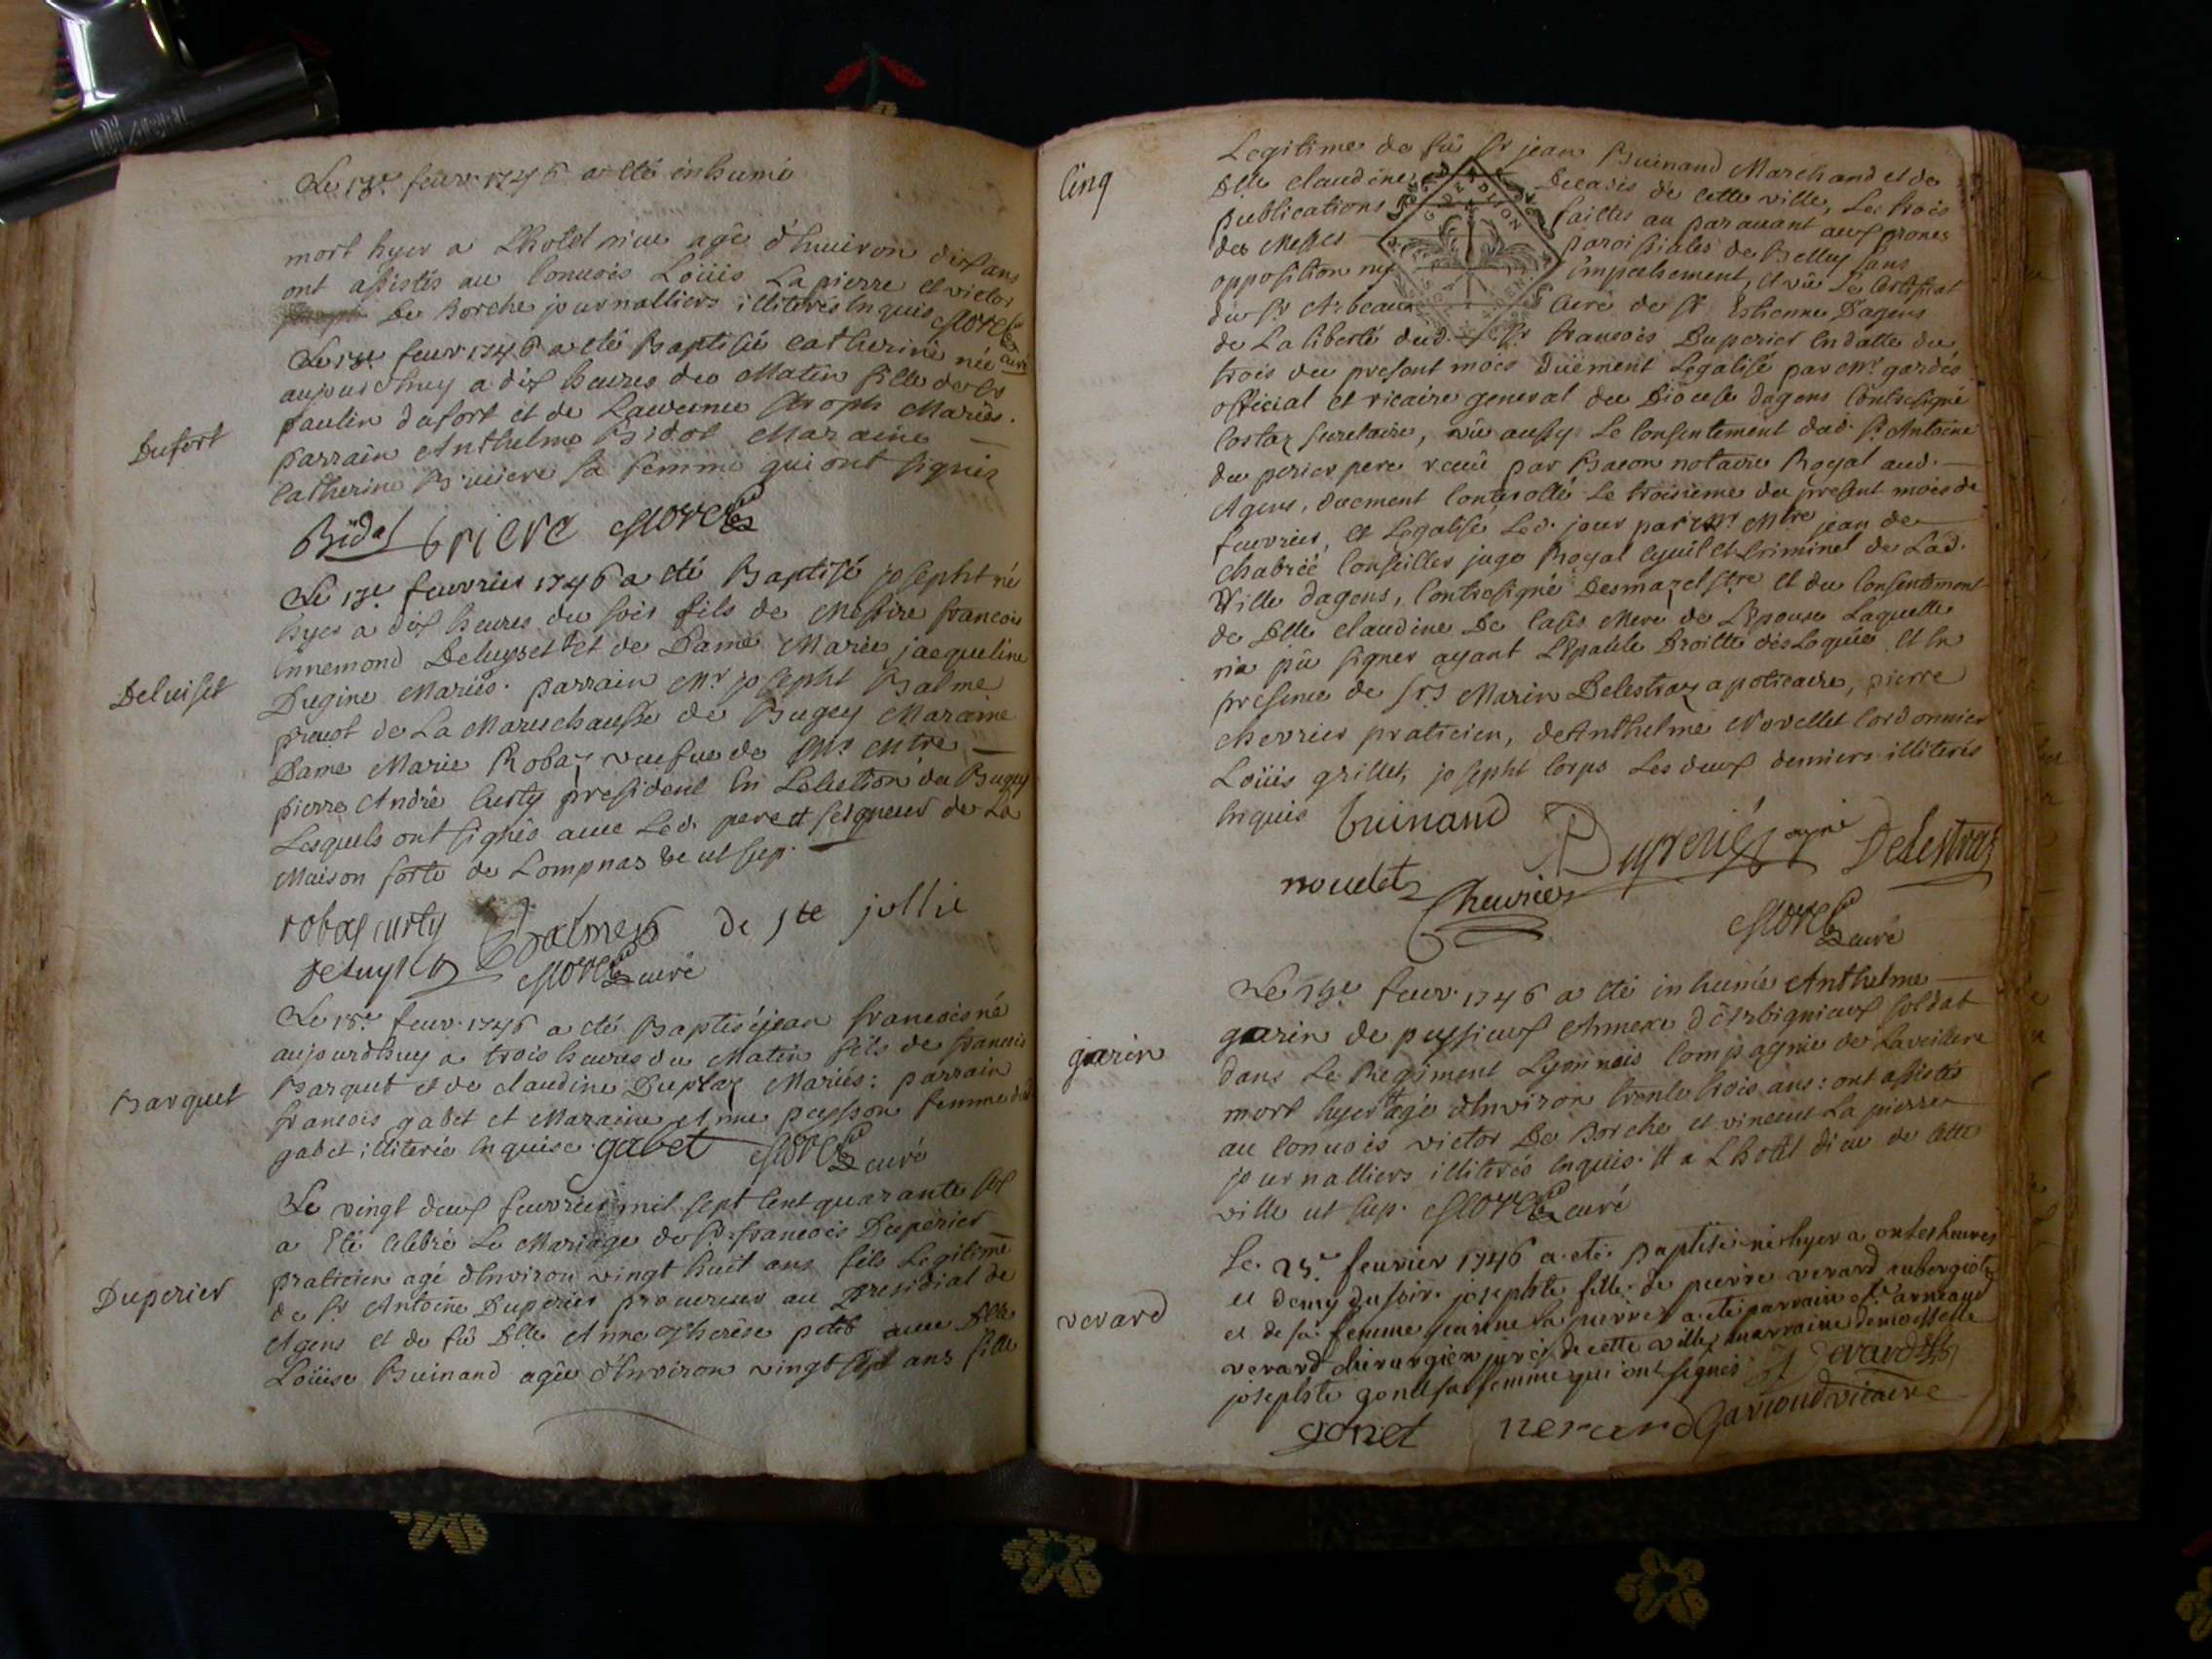 Le 13e feuvr. 1746 a eté inhumé
mort hyer a Lhotel Dieu agé d'huiron dix ans
ont assistés au Conuois Loüis Lapierre et victor
De Borche journalliers illiterés Enquis Morel curé
Dufort
Le 13e feuvr. 1746 a eté Baptisée catherine née
aujourdhuy a dix heures du Matin fille de Sr
paulin dufort et de Laurence Mariés.
parrain Anthelme Bidot Maraine
Catherine Briuere sa femme qui ont signés
Bidal briere Morel
Deluiset
Le 17e feuvrier 1746 a eté Baptisé josepht né
hyer a dix heures du soir fils de Messire francois
Ennemond Deluyset et de Dame Marie jacqueline
Dugine Mariés. parrain Mr josepht Balme
preuot de La Mareschaussée de Bugey Maraine
Dame Marie Robaz veufue de Mr Mtre
pierre André Curty president En Lelection du Bugey
Lesquels ont signés auec Led. pere et seigneur de La
Maison forte de Lompnas &e ut sup.
robas curty Balme de ste jullie
deluyset Morel curé
Barquet
Le 18e feuv. 1746 a eté Baptisé jean francois né
aujourdhuy a trois heures du Matin fils de francois
Barquet et de claudine Duplaz Mariés: parrain
francois gabet et Maraine Anne puysson femme dud.
gabet illiterée Enquise. gabet Morel curé
Duperier
Le vingt deux feuvrier mil sept cent quarante six
a Eté Celebré Le Mariage de Sr francois Duperier
praticien agé dEnviron vingt huit ans fils Legitime
de Sr Antoine Duperier procureur au presidial de
Agens et de fû Dlle Anne Therèse petit auec Dlle
Loüise Buinand agée dEnviron vingt sept ans fille
Cinq
Legitime de fû Sr jean Buinand Marchand et de
Dlle claudine Decasis de cette ville, Les trois
publications faittes au parauant aux prones
des Messes paroissiales de Belley sans
opposition ny empechement, et vû Le Certificat
du Sr Arbeau Curé de St Estienne Dagens
de La liberté dud. Sr francois Duperier En datte du
trois du present mois Duëment Legalisé par Mr gardés
official et vicaire general du Diocese dagens Contresigné
Costaz secretaire, vû aussy Le Consentement dud. Sr Antoine
du perier pere reçû par Bacon notaire Royal aud.
Agens, duement Controllé Le troisieme du present mois de
feuvrier, et Legalisé Led. jour par Mr Mtre jean de
chabrié Conseiller juge Royal Cyuil et Criminel de Lad.
Ville dagens, Contresigné Desmazel Stre et du Consentement
de Dlle claudine De Casis Mere de LEpouse Laquelle
n'a pû signer ayant LEpaule Droitte desloquée et En
presence de Srs Marin Delestraz apoticaire, pierre
chevrier praticien, de Anthelme Novellet Cordonnier
Loüis grillet, josepht Corps Les deux derniers illiterés
Enquis Buinand Duperié Delestraz
nouelet Cheurier
Morel curé
garin
Le 19e feuv. 1746 a eté inhumé Anthelme
garin de peyzieux Annexe dArbignieux soldat
dans Le Regiment Lyonnois Compagnie de
mort hyer agé dEnviron trente trois ans: ont assistés
au Conuois victor De Borche et vincent La pierre
journalliers illiterés Enquis. # a Lhotel dieu de Cette
ville ut sup. Morel curé
verard
Le. 25.e feurier 1746 a. eté. Baptisée née hyer a ontes heures
et demy du soir. josephte fille. de pierre verard aubergiste
et de sa. femme jeanne la pierre, a eté parrain Sr arneaud
verard chirurgien juré, de cette ville, marraine demoisselle
josephte gonet sa femme qui ont signés Verard
gonet verard Gariond vicaire